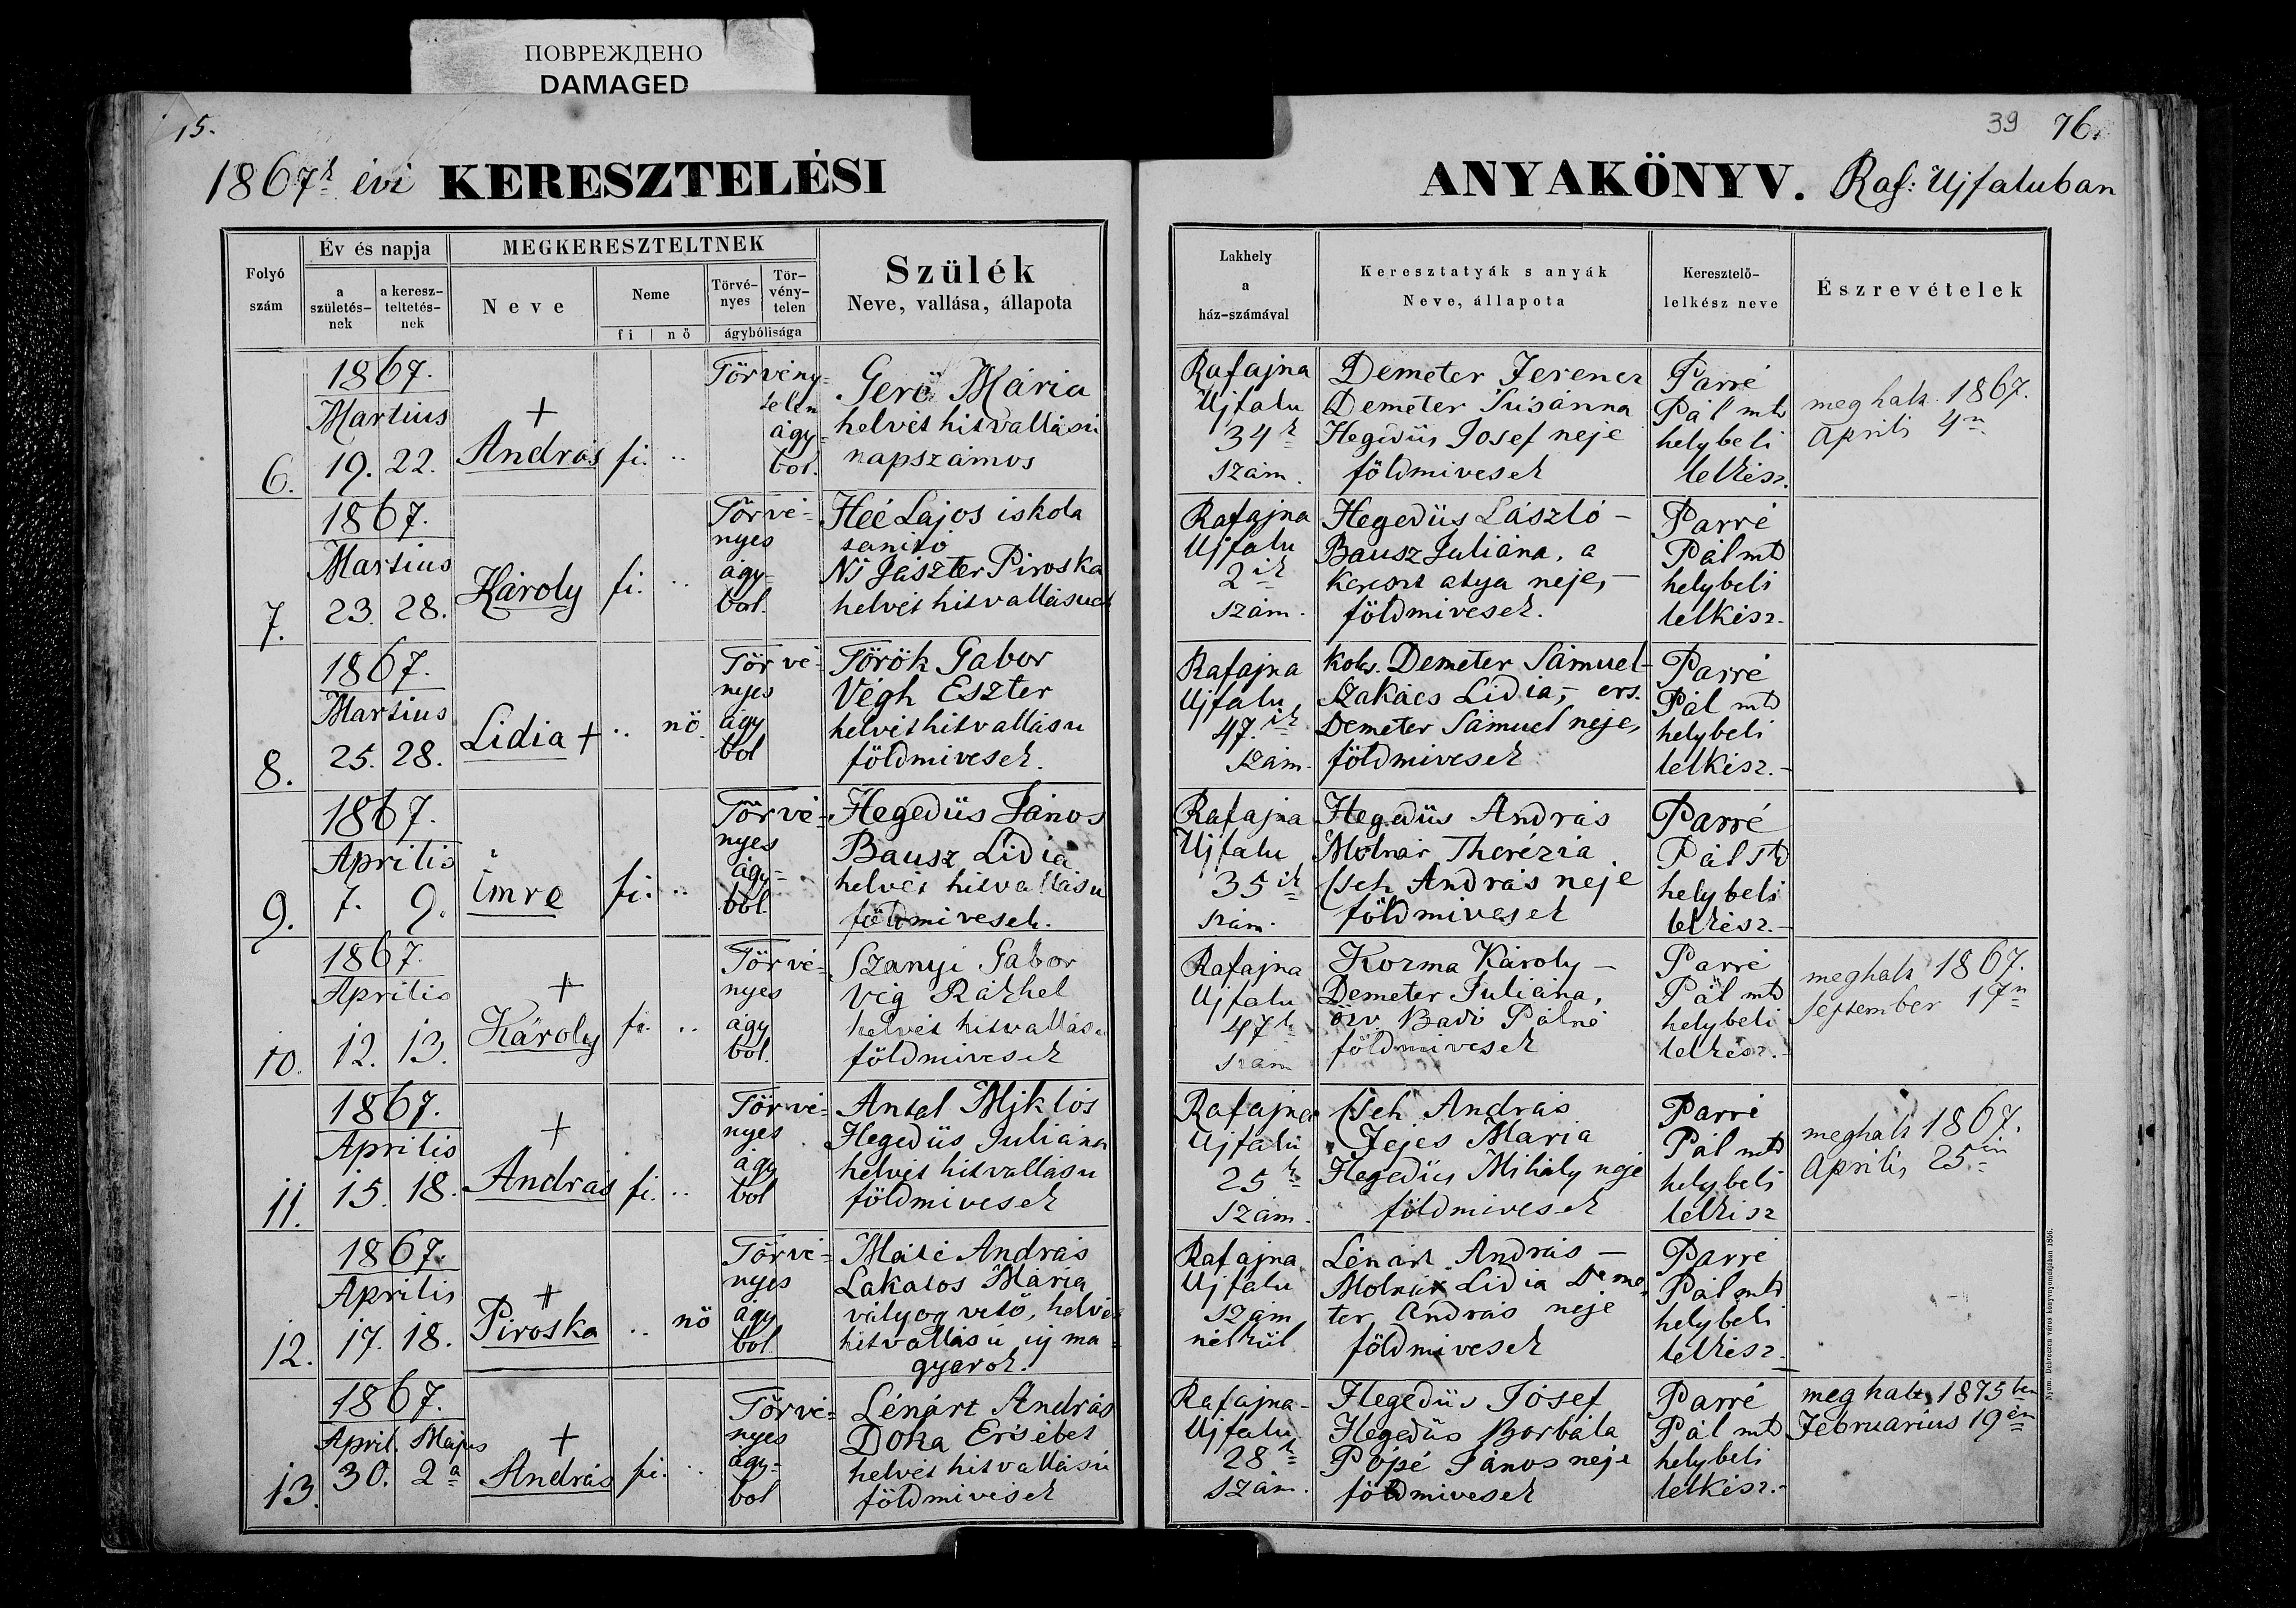 ПОВРЕЖДЕНО
DAMAGED
15.
39 76.
1867k évi KERESZTELÉSI
ANYAKÖNYV. Raf: Ujfaluban
Folyó szám
Év és napja
a születés-nek
a keresz-teltetés-nek
MEGKERESZTELTNEK
Neve
Neme
fi nő
Törvé-nyes
Tör-vény-telen
ágybólisága
Szülék
Neve, vallása, állapota
Lakhely
a
ház-számával
Keresztatyák s anyák
Neve, állapota
Keresztelő-
lelkész neve
Észrevételek
6.
1867.
Martius
19. 22.
+
András
fi. ..
Törvény=
telen
ágy=
bol.
Gerö Mária
helvét hitvallású
napszámos
Rafajna
Ujfalu
34k
szám.
Demeter Ferencz
Demeter Susánna
Hegedüs Josef neje
földmivesek
Parré
Pál mk
helybeli
lelkész.
meghalt 1867.
Aprilis 4n
7.
1867.
Martius
23. 28.
Károly
fi. ..
Törvé=
nyes
ágy=
bol.
Heé Lajos iskola
tanitó
Jászter Piroska
helvét hitvallásuak
Rafajna
Ujfalu
2ik
szám.
Hegedüs László –
Bausz Juliána, a
kereszt atya neje, –
földmivesek.
Parré
Pál mk
helybeli
lelkész.
8.
1867.
Martius
25. 28.
Lidia +
.. nö.
Törvé=
nyes
ágy
bol
Török Gabor
Végh Eszter
helvét hitvallásu
földmivesek.
Rafajna
Ujfalu
47.ik
szám.
Demeter Sámuel –
Szakács Lidia, – ers.
Demeter Sámuel neje,
földmivesek
Parré
Pál mk
helybeli
lelkész. –
9.
1867.
Aprilis
7. 9.
Imre
fi. ..
Törvé=
nyes
ágy=
bol.
Hegedüs János
Bausz Lidia
helvét hitvallásu
földmivesek.
Rafajna
Ujfalu
35ik
szám.
Hegedüs András
Molnár Therézia
András neje
földmivesek
Parré
Pál
helybeli
lelkész. –
10.
1867.
Aprilis
12. 13.
+
Károly
fi. ..
Törvé=
nyes
ágy
bol.
Szanyi Gabor
Vig Ráhel
helvét hitvallásu
földmivesek
Rafajna
Ujfalu
47k
szám
Kozma Károly –
Demeter Juliána,
özv. Badó Pálné
földmivesek
Parré
Pál mk
helybeli
lelkész. –
meghalt 1867.
September 17n
11.
1867.
Aprilis
15. 18.
+
András
fi. ..
Törvé=
nyes
ágy
bol
Antal Miklós
Hegedüs Juliána
helvét hitvallásu
földmivesek
Rafajna
Ujfalu
25k
szám.
András
Fejes Maria
Hegedüs Mihály neje
földmivesek
Parré
Pál mk
helybeli
lelkisz
meghalt 1867.
Aprilis 25in
12.
1867.
Aprilis
17. 18.
+
Piroska
.. nö
Törvé=
nyes
ágy
bol.
Máté András
Lakatos Mária
vályog vető, helvét
hitvallásu uj ma=
gyarok.
Rafajna
Ujfalu
szám
nélkül
Lénárt András –
Molnár Lidia Deme
ter András neje
földmivesek
Parré
Pál mk
helybeli
lelkész.
13.
1867.
April. Majus
30. 2a
+
András
fi. ..
Törvé=
nyes
ágy=
bol
Lénárt András
Doka Ersébet
helvét hitvallásu
földmivesek
Rafajna-
Ujfalu
28k
szám.
Hegedüs Jósef
Hegedüs Borbála
Pópé János neje
földmivesek
Parré
Pál mk
helybeli
lelkész. –
meghalt 1875ben
Februarius 19én
Nyom. Debreczen város könyvnyomdájában 1856.